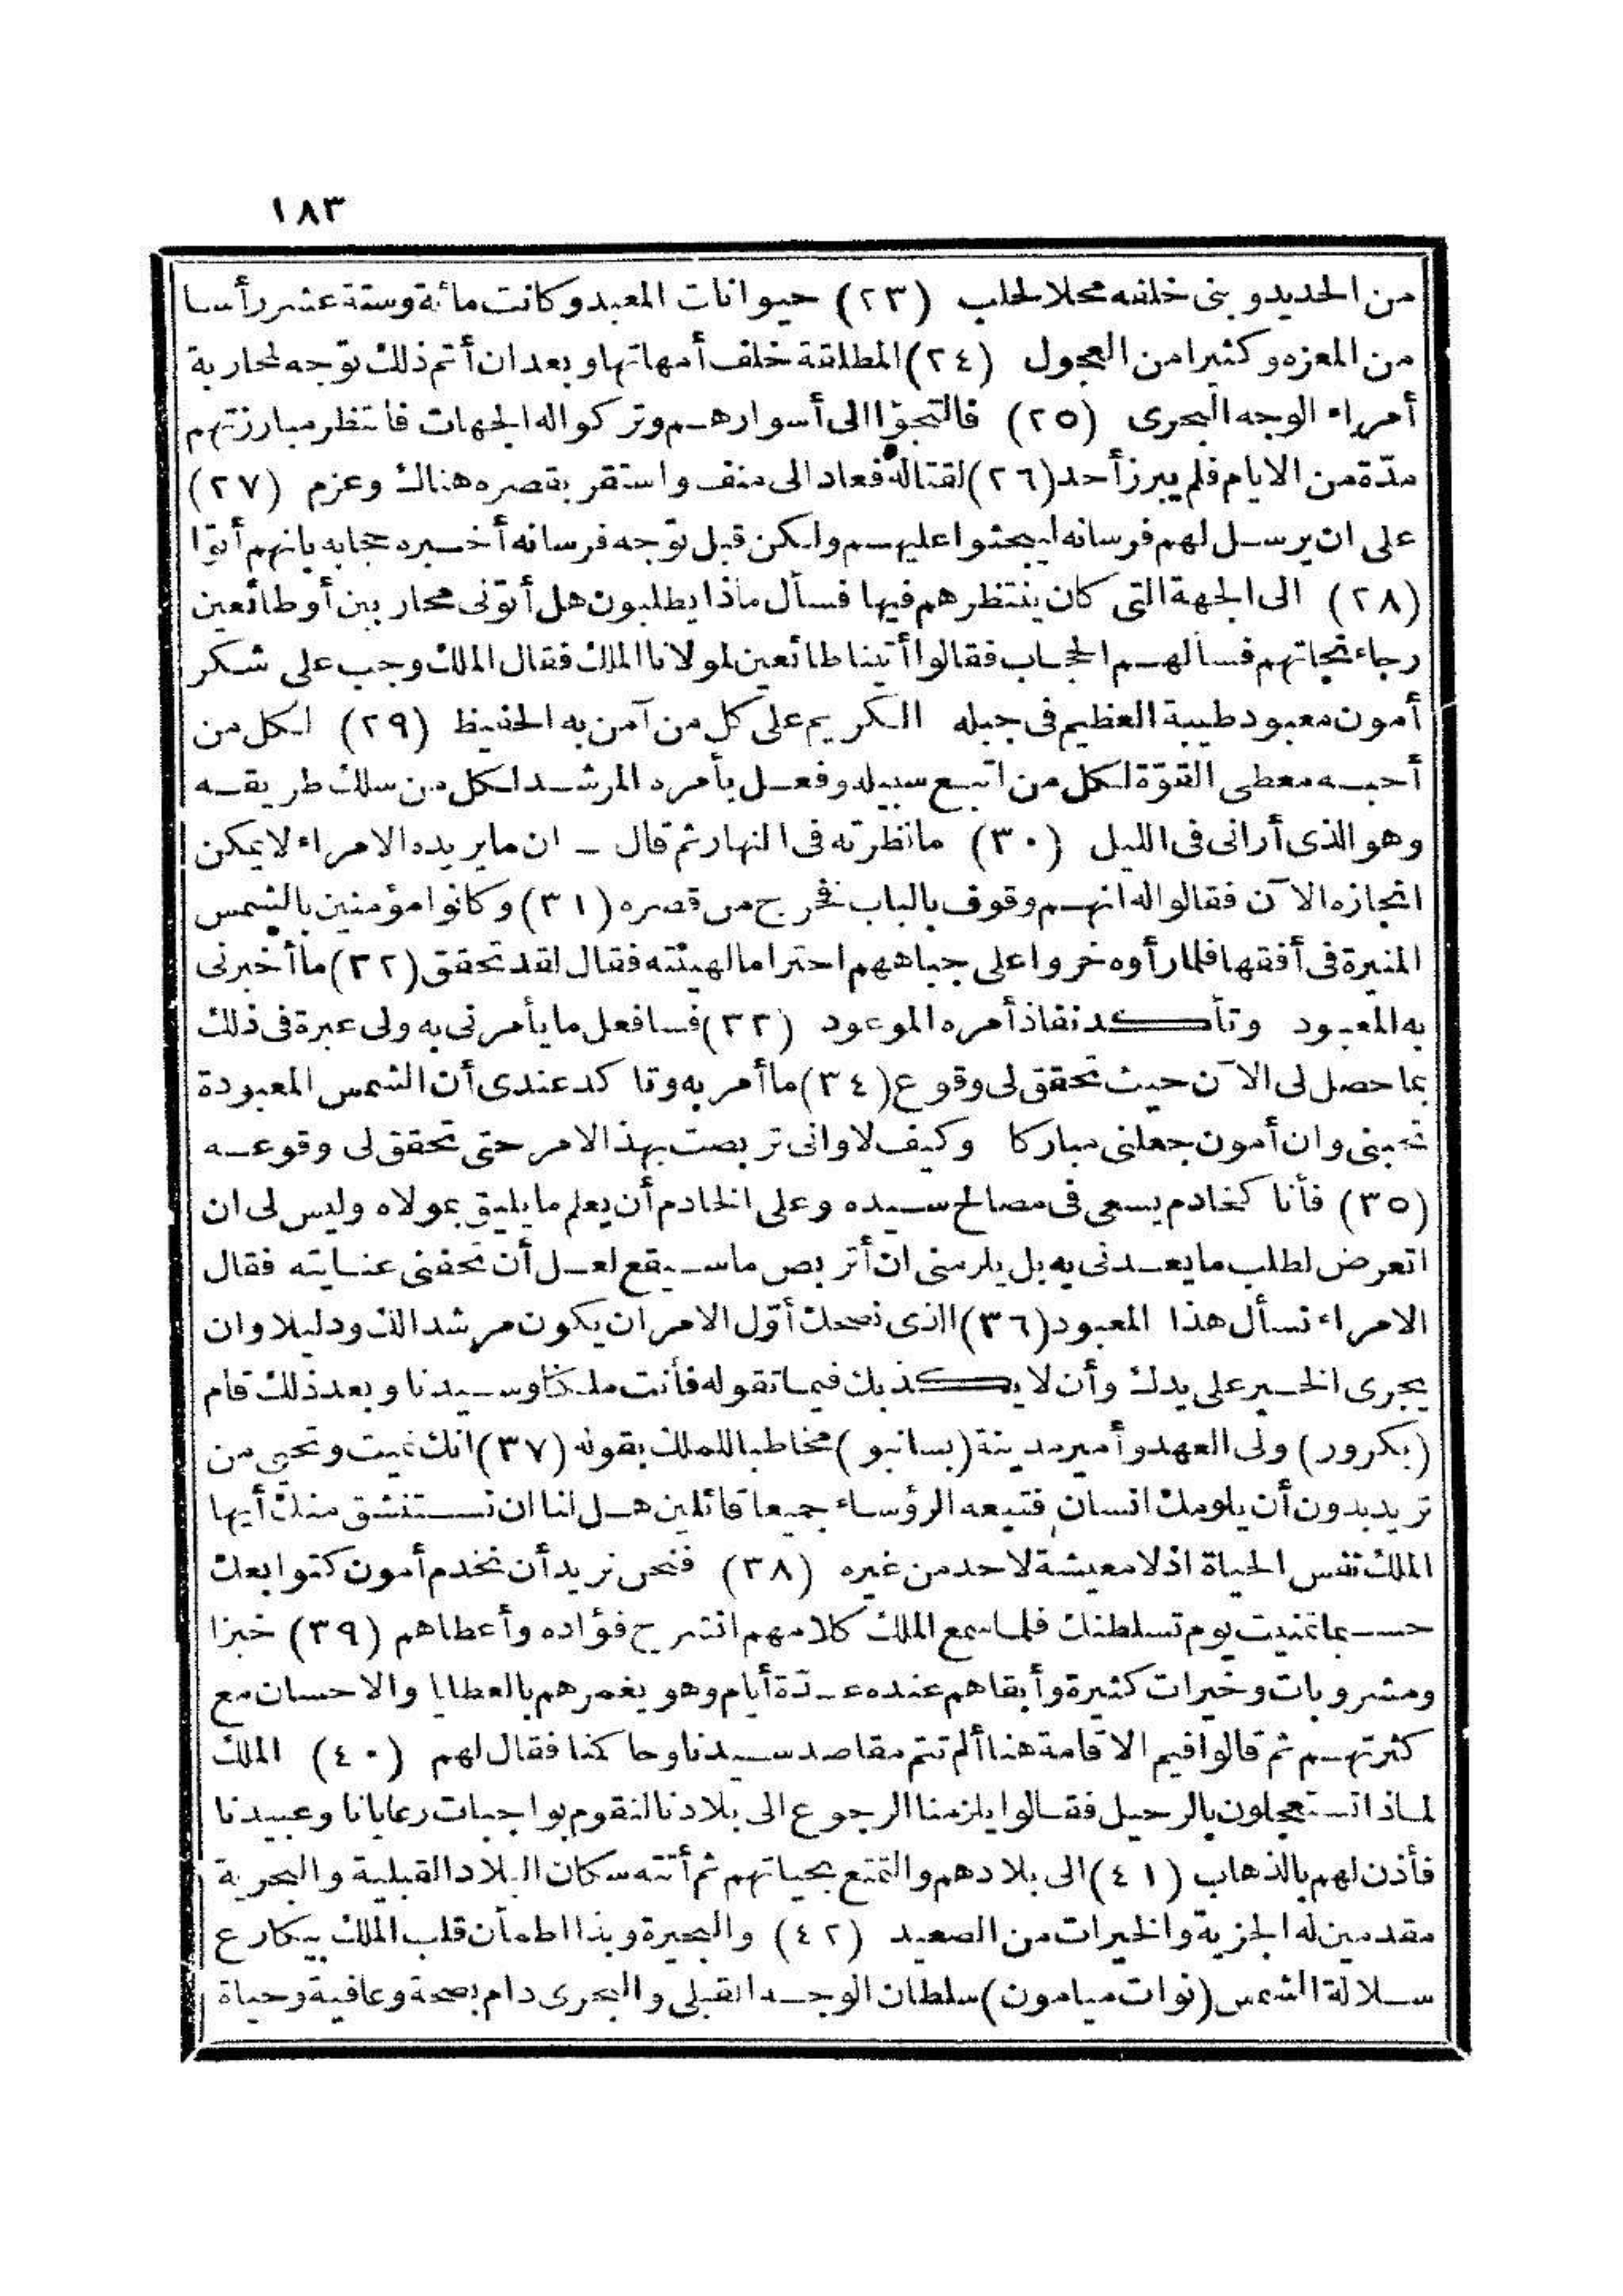 ١٨٣
من الحديد وبنى خلفه محلا لحلب (٢٣) حيوانات المعبد وكانت مائة وستة عشر رأسا
من المعزه وكثيرا من العجول (٢٤) المطلقة خلف أمهاتها وبعد ان أتم ذلك توجه لمحاربة
أمراء الوجه البحرى (٢٥) فالتجؤا الى أسوارهم وتركوا له الجهات فانتظر مبارزتهم
مدّة من الايام فلم يبرز أحد (٢٦) لقتاله فعاد الى منف واستقر بقصره هناك وعزم (٢٧)
على ان يرسل لهم فرسانه ليبحثوا عليهم ولكن قبل توجه فرسانه أخبره حجابه بانهم أتوا
(٢٨) الى الجهة التى كان ينتظرهم فيها فسأل ماذا يطلبون هل أتونى محاربين أو طائعين
رجاء نجاتهم فسألهم الحجاب فقالوا أتينا طائعين لمولانا الملك فقال الملك وجب على شكر
أمون معبود طيبة العظيم فى جبله الكريم على كل من آمن به الحفيظ (٢٩) لكل من
أحبه معطى القوّة لكل من اتبع سبيله وفعل بأمره المرشد لكل من سلك طريقه
وهو الذى أرانى فى الليل (٣٠) ما نظرته فى النهار ثم قال - ان ما يريده الامراء لا يمكن
انجازه الآن فقالوا له انهم وقوف بالباب فخرج من قصره (٣١) وكانوا مؤمنين بالشمس
المنيرة فى أفقها فلما رأوه خروا على جباههم احتراما لهيئته فقال لقد تحقق (٣٢) ما أخبرنى
به المعبود وتأكد نفاذ أمره الموعود (٣٣) فسافعل ما يأمرنى به ولى عبرة فى ذلك
بما حصل لى الآن حيث تحقق لى وقوع (٣٤) ما أمر به وتاكد عندى أن الشمس المعبودة
تحبنى وان أمون جعلنى مباركا وكيف لا وانى تربصت بهذا الامر حتى تحقق لى وقوعه
(٣٥) فأنا كخادم يسعى فى مصالح سيده وعلى الخادم أن يعلم ما يليق بمولاه وليس لى ان
اتعرض لطلب ما يعدنى به بل يلزمنى ان أتربص ما سيقع لعل أن تحفنى عنايته فقال
الامراء نسأل هذا المعبود (٣٦) الذى نصحك أوّل الامر ان يكون مرشدا لك ودليلا وان
يجرى الخير على يدك وأن لا يكذبك فيما تقوله فأنت ملكنا وسيدنا وبعد ذلك قام
(بكرور) ولى العهد وأمير مدينة (بسانبو) مخاطبا للملك بقوله (٣٧) انك تميت وتحيى من
تريد بدون أن يلومك انسان فتبعه الرؤساء جميعا قائلين هل لنا ان نستنشق منك أيها
الملك تنفس الحياة اذ لا معيشة لاحد من غيره (٣٨) فنحن نريد أن نخدم أمون كتوابعك
حسبما تمنيت يوم تسلطنك فلما سمع الملك كلامهم انشرح فؤاده وأعطاهم (٣٩) خبزا
ومشروبات وخيرات كثيرة وأبقاهم عنده عدّة أيام وهو يغمرهم بالعطايا والاحسان مع
كثرتهم ثم قالوا فيم الاقامة هنا ألم تتم مقاصد سيدنا وحاكمنا فقال لهم (٤٠) الملك
لماذا تستعجلون بالرحيل فقالوا يلزمنا الرجوع الى بلادنا لنقوم بواجبات رعايانا وعبيدنا
فأذن لهم بالذهاب (٤١) الى بلادهم والتمتع بحياتهم ثم أتته سكان البلاد القبلية والبحرية
مقدمين له الجزية والخيرات من الصعيد (٤٢) والبحيرة وبذا اطمأن قلب الملك بيكارع
سلالة الشمس (نوات ميامون) سلطان الوجه القبلى والبحرى دام بصحة وعافية وحياة